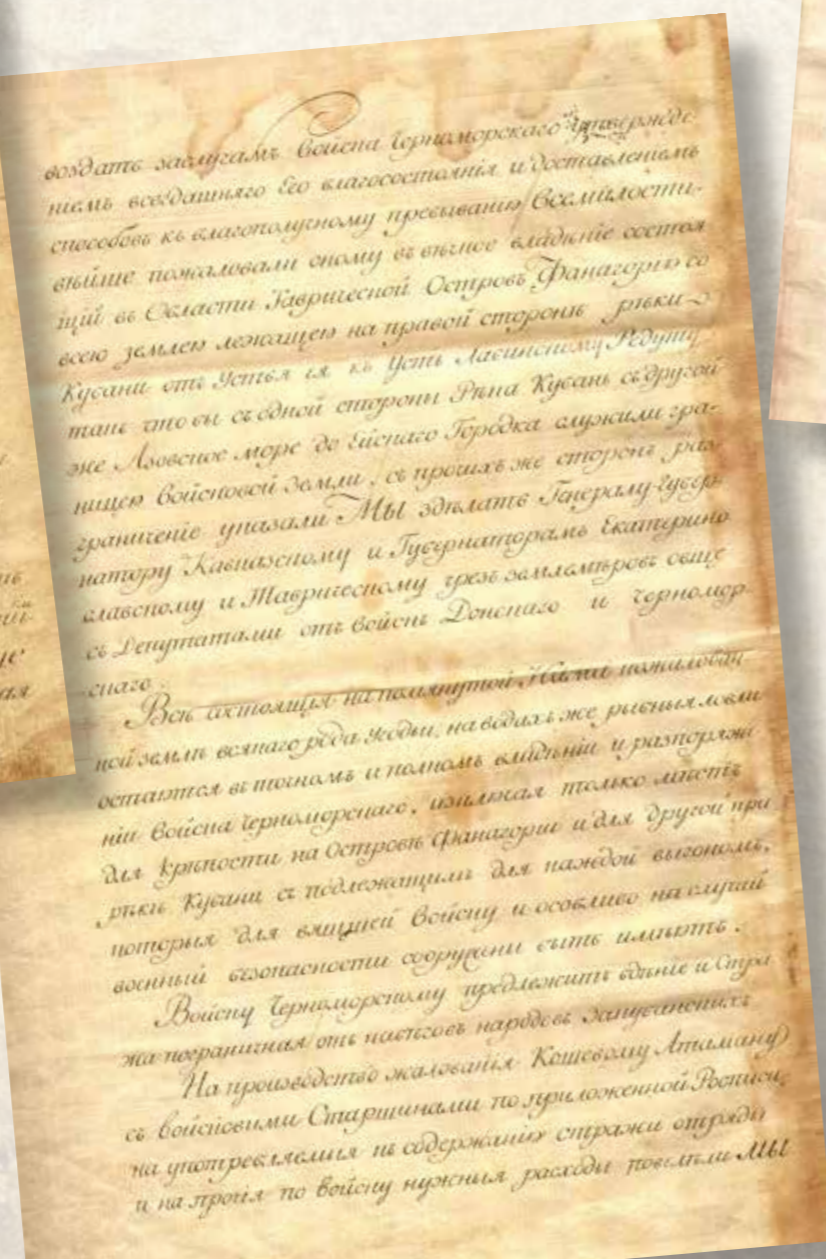 воздать заслугамъ Войска Черноморскаго утвержде-
ніемъ всегдашняго Его благосостоянія и доставленіемъ
способовъ къ благополучному пребыванію Всемилости-
вѣйше пожаловали оному въ вѣчное владѣніе состоя
щій въ Области Таврической Островъ Фанагорію со
всею землею лежащею на правой сторонѣ рѣки
Кубани отъ Устья ея къ Усть Лабинскому Редуту
такъ что бы съ одной стороны Рѣка Кубань съ другой
же Азовское море до Ейскаго Городка служили гра-
ницею Войсковой Земли, съ прочихъ же сторонъ раз-
граниченіе указали МЫ здѣлать Генералу-Губер-
натору Кавказскому и Губернаторамъ Екатерино
славскому и Таврическому чрезъ землемѣровъ обще
съ Депутатами отъ Войскъ Донскаго и Черномор-
скаго.
Всѣ состоящія на помянутой Нами пожалован
ной землѣ всякаго рода угодьи, на водахъ же рыбныя ловли
остаются въ точномъ и полномъ владѣніи и разпоряже
ніи Войска Черноморскаго, изключая только мѣстъ
для крѣпости на Островѣ Фанагоріи и для другой при
рѣкѣ Кубани съ подлежащимъ для каждой выгономъ,
которыя для вящшей Войску и особливо на случай
военный безопасности сооружены быть имѣютъ.
Войску Черноморскому предлежитъ бдѣніе и Стра
жа пограничная отъ набѣговъ народовъ Закубанскихъ
На производство жалованія Кошевому Атаману
съ войсковыми Старшинами по приложенной Росписи,
на употребляемыя къ содержанію стражи отряды
и на протчія по Войску нужныя расходы повелѣли МЫ